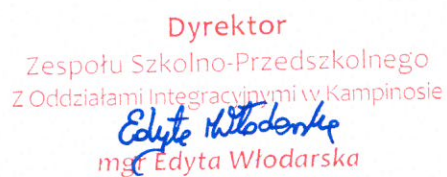 Dyrektor
Zespołu Szkolno-Przedszkolnego
Z Oddziałami Integracyjnymi w Kampinosie
Edyta Włodarska
mgr Edyta Włodarska